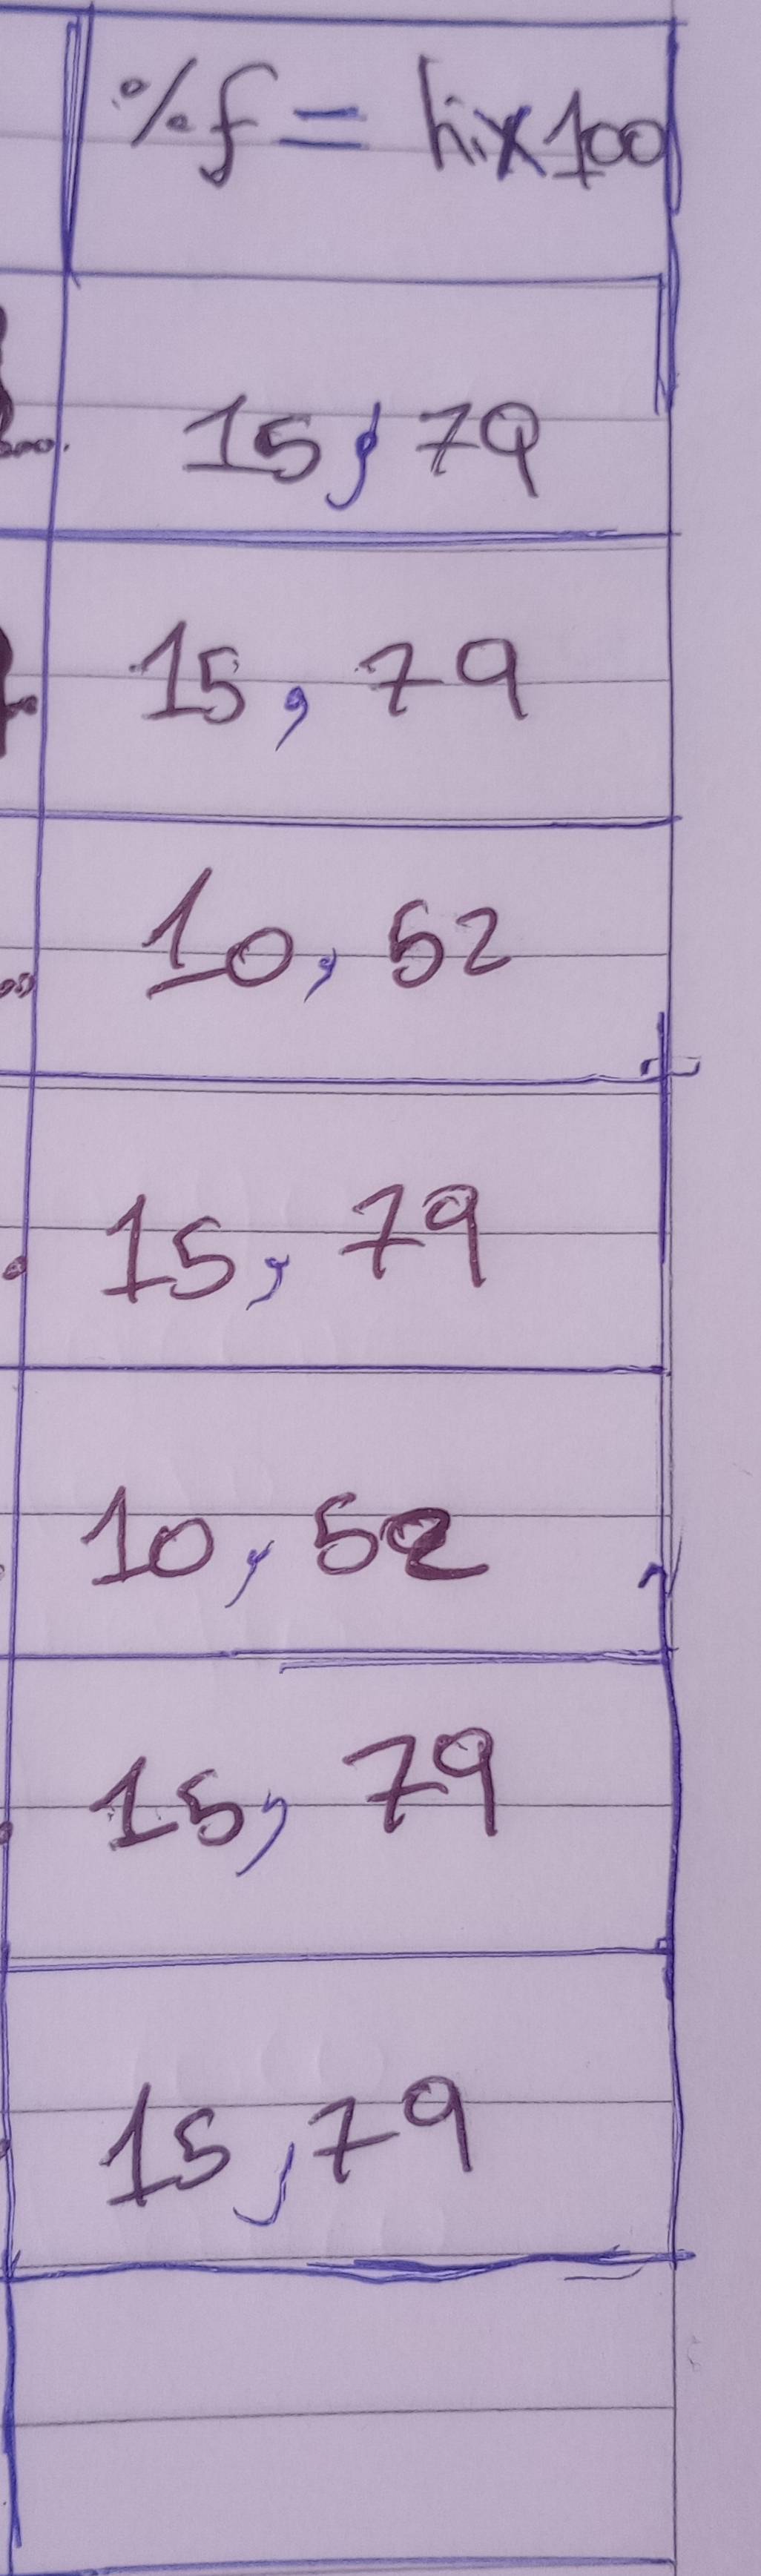 %f = hix100
15,79
15,79
10,52
15,79
10,52
15,79
15,79